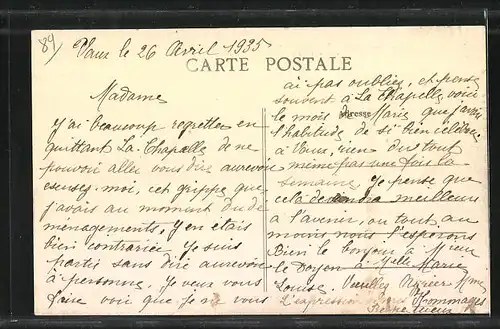 89)
Vaux le 26 Avril 1935
CARTE POSTALE
Madame
J'ai beaucoup regretter en
quittant La Chapelle de ne
pouvoir aller vous dire aurevoir
moi, cet grippe que
j'avais au moment du dé
ménagements, j'en étais
bien contrariée je suis
partis sans dire aurevoir
à personne, Je veux vous
faire voir que je ne vous
ai pas oubliés, et pense
souvent à La Chapelle voici
le mois Adresse Marie que j'avais
l'habitude de si bien célébrer
à Vaux, rien du tout
même pas une fois la
semaine, je pense que
cela deviendra meilleurs
à l'avenir, ou tout au
moins nous l'esperons
Bien le bonjour à Mieur
le Doyen à Melle Marie
Louise. Veuillez Mme
L'expression Hommages